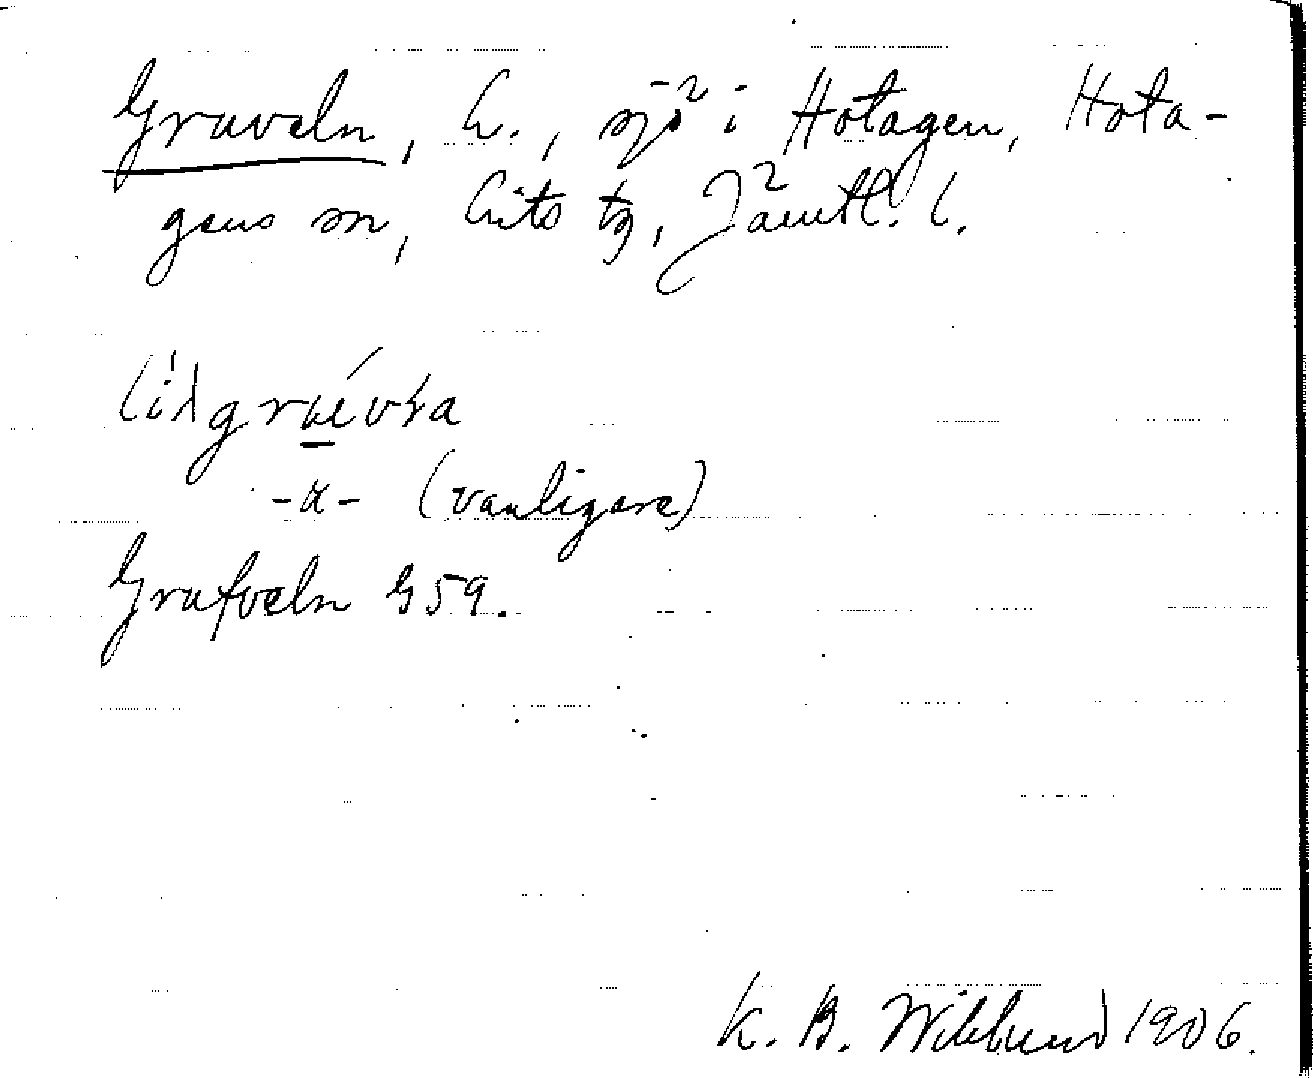 Graveln, L., sjö i Hotagen, Hota-
gens sn, Lits tg, Jämtl. l.
grævra
-a- (vanligare)
Grafveln G59.
K. B. Wiklund 1906.